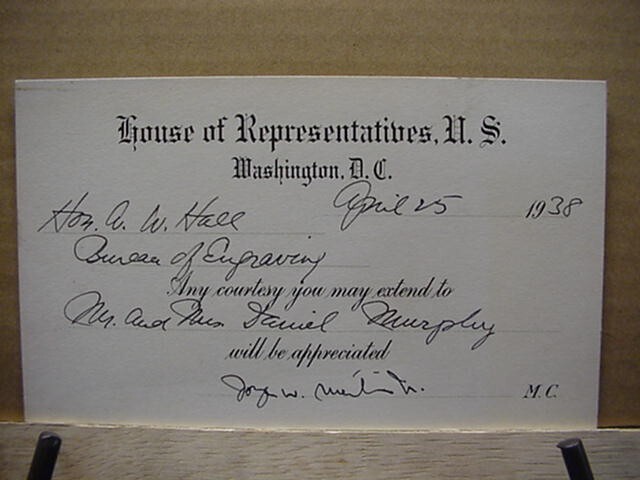 House of Representatives, U. S.
Washington, D. C.
April 25 1938
Hon. A. W. Hall
Bureau of Engraving
Any courtesy you may extend to
Mr. and Mrs Daniel Murphy
will be appreciated
W. Martin Jr. M. C.